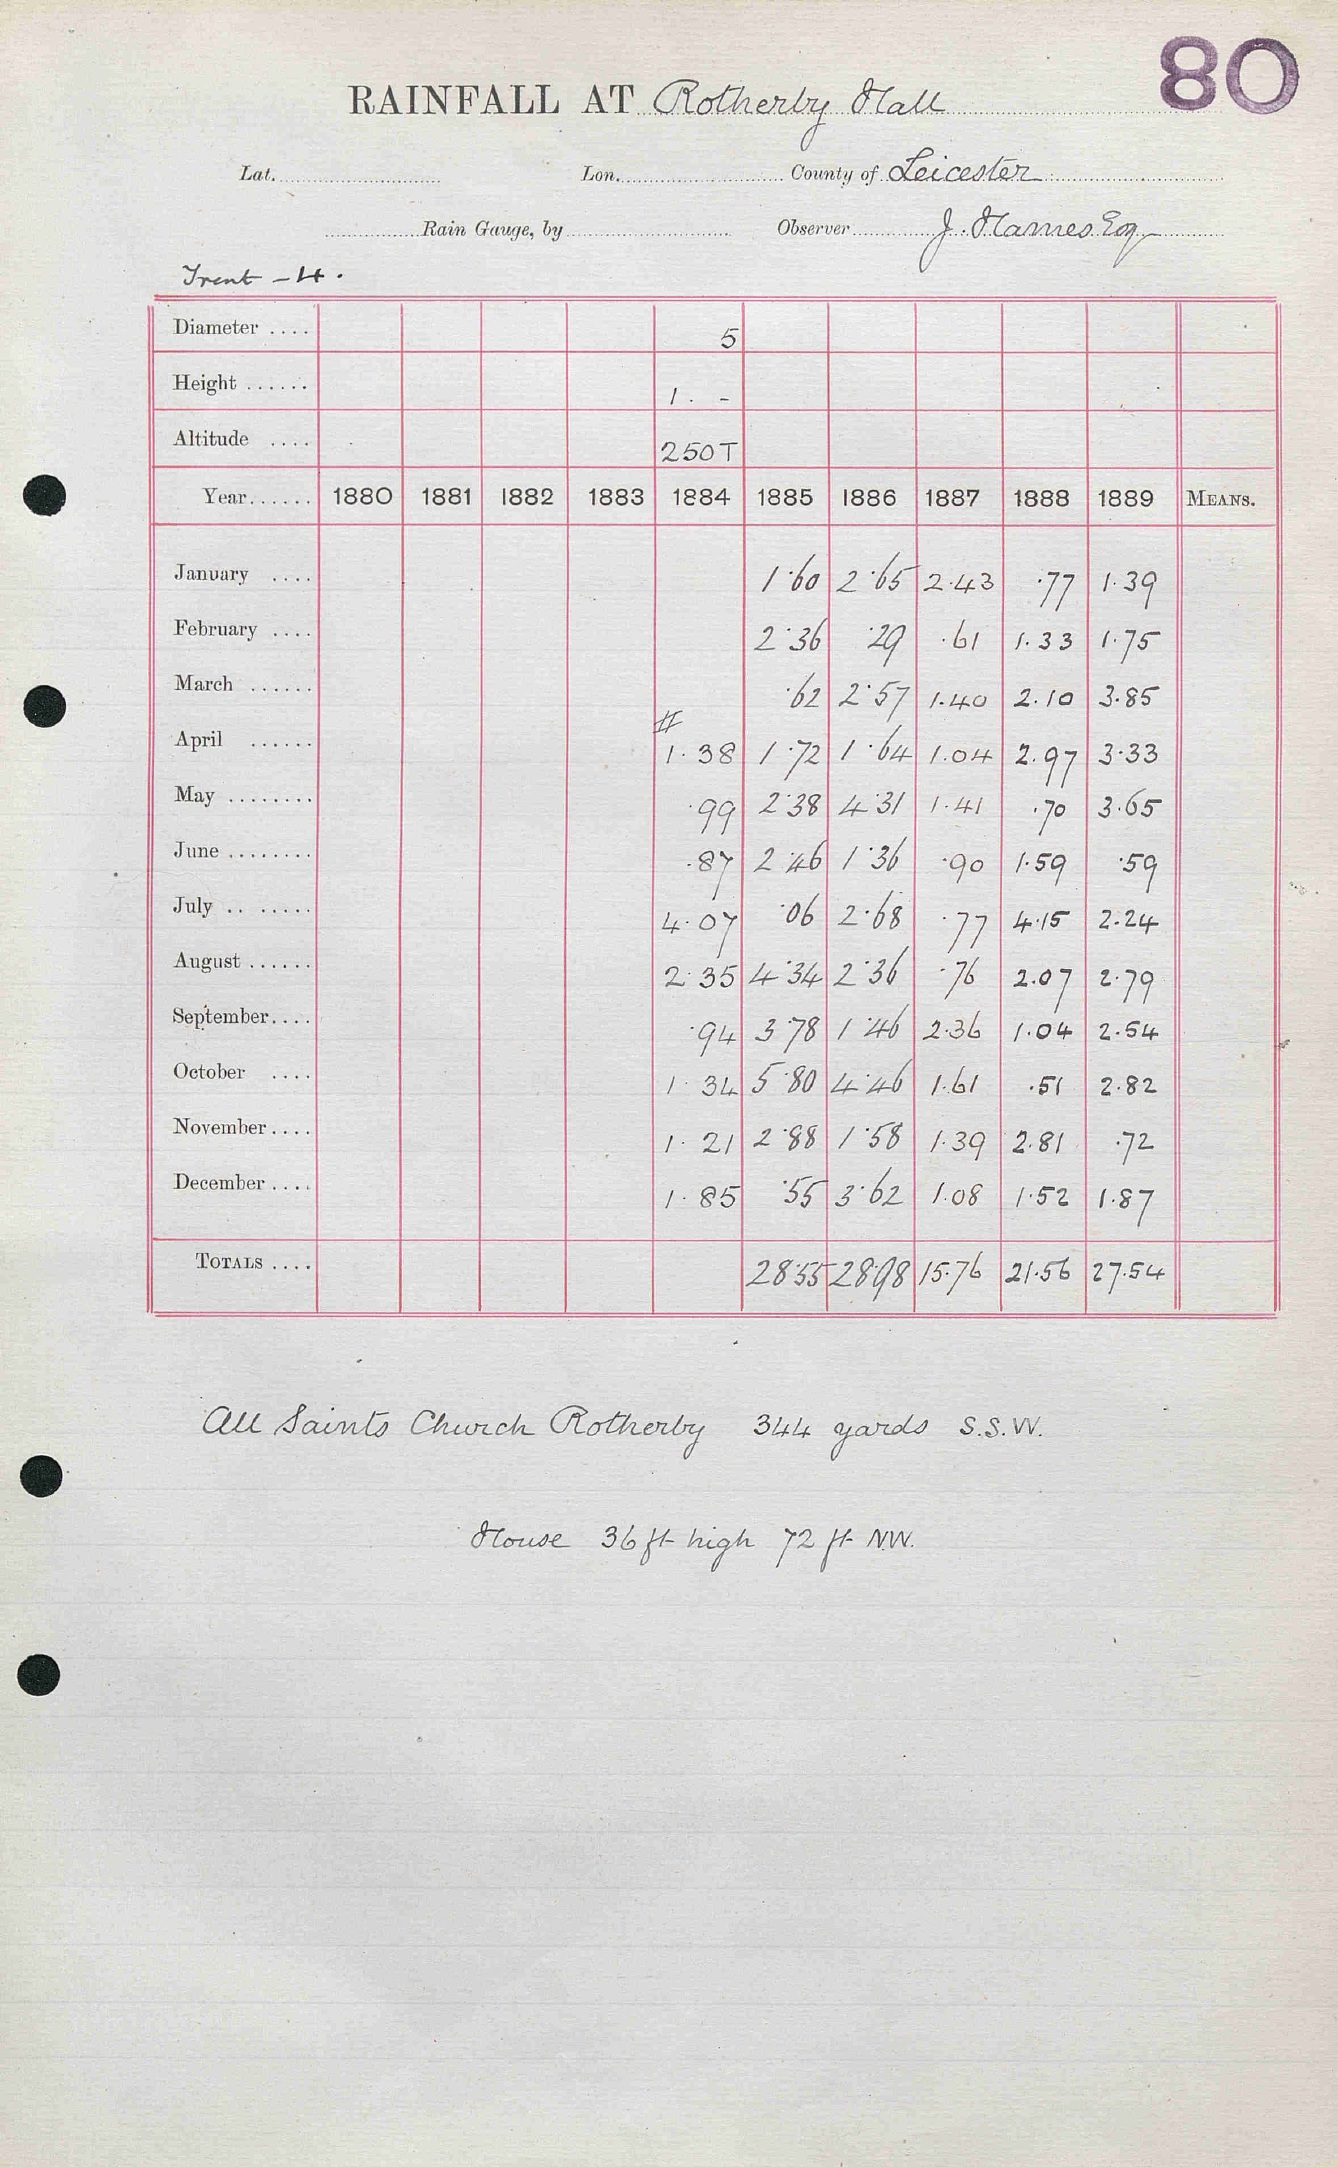 80
RAINFALL AT Rotherby Hall
Lat. Lon. County of Leicester
Rain Gauge, by Observer J. Hames Esq
Trent - 4.
Diameter .... 5
Height ...... 1. -
Altitude .... 250T
Year...... 1880 1881 1882 1883 1884 1885 1886 1887 1888 1889 MEANS.
January .... 1.60 2.65 2.43 .77 1.39
February .... 2.36 .29 .61 1.33 1.75
March ...... .62 2.57 1.40 2.10 3.85
#
April ...... 1.38 1.72 1.64 1.04 2.97 3.33
May ........ .99 2.38 4.31 1.41 .70 3.65
June ........ .87 2.46 1.36 .90 1.59 .59
July .. ..... 4.07 .06 2.68 .77 4.15 2.24
August ...... 2.35 4.34 2.36 .76 2.07 2.79
September.... .94 3.78 1.46 2.36 1.04 2.54
October .... 1.34 5.80 4.46 1.61 .51 2.82
November.... 1.21 2.88 1.58 1.39 2.81 .72
December .... 1.85 .55 3.62 1.08 1.52 1.87
TOTALS .... 28.55 28.98 15.76 21.56 27.54
All Saints Church Rotherby 344 yards S.S.W.
House 36 ft high 72 ft N.W.